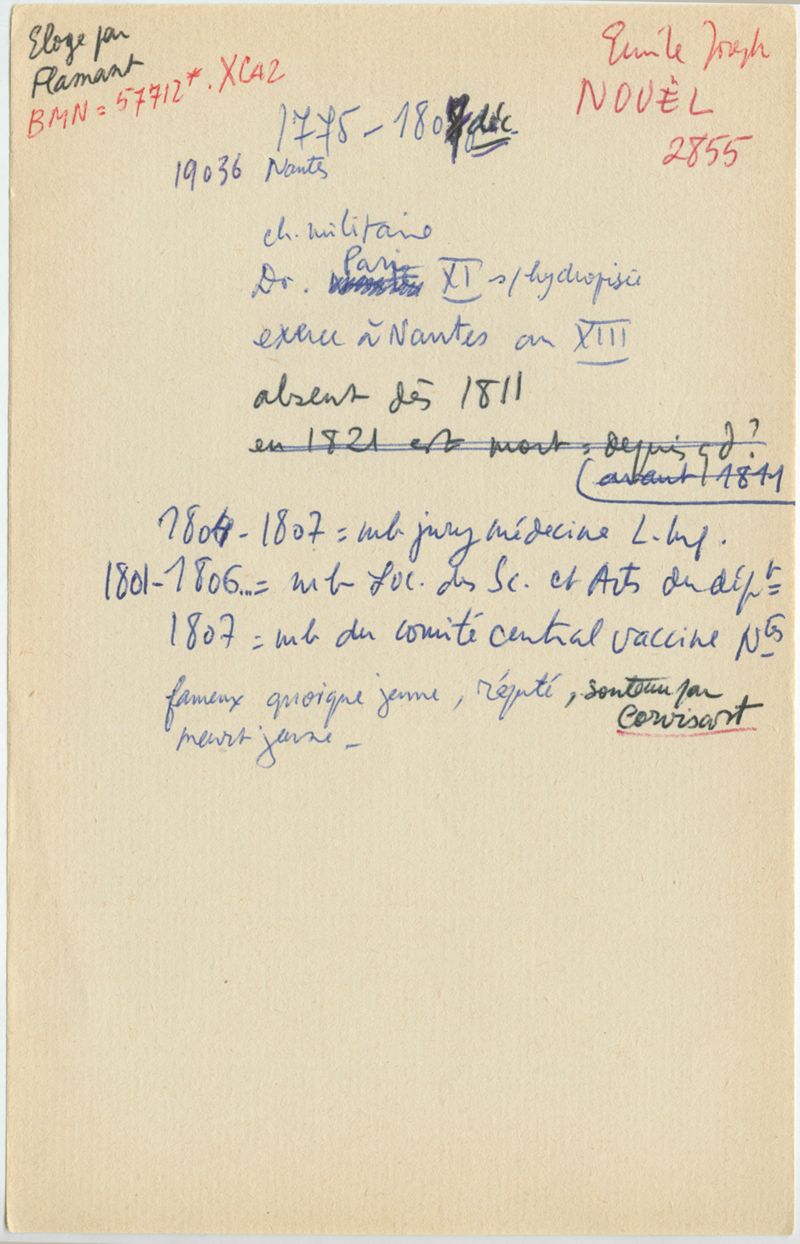 Eloge par
Flamant
BMN = 57712* . XCA2
Emile Joseph
NOUËL
2855
1775 - 1807 déc.
19036 Nantes
ch. militaire
Paris
Dr. XI s/hydropisie
exerce à Nantes an XIII
absent dès 1811
en 1821 est mort = depuis qd ?
(avant 1811
1804 - 1807 = mb jury médecine L. Inf.
1801 - 1806... = mb Soc. des Sc. et Arts du dépt =
1807 = mb du comité central vaccine Ntes
fameux quoique jeune, réputé, soutenu par
Corvisart
meurt jeune _